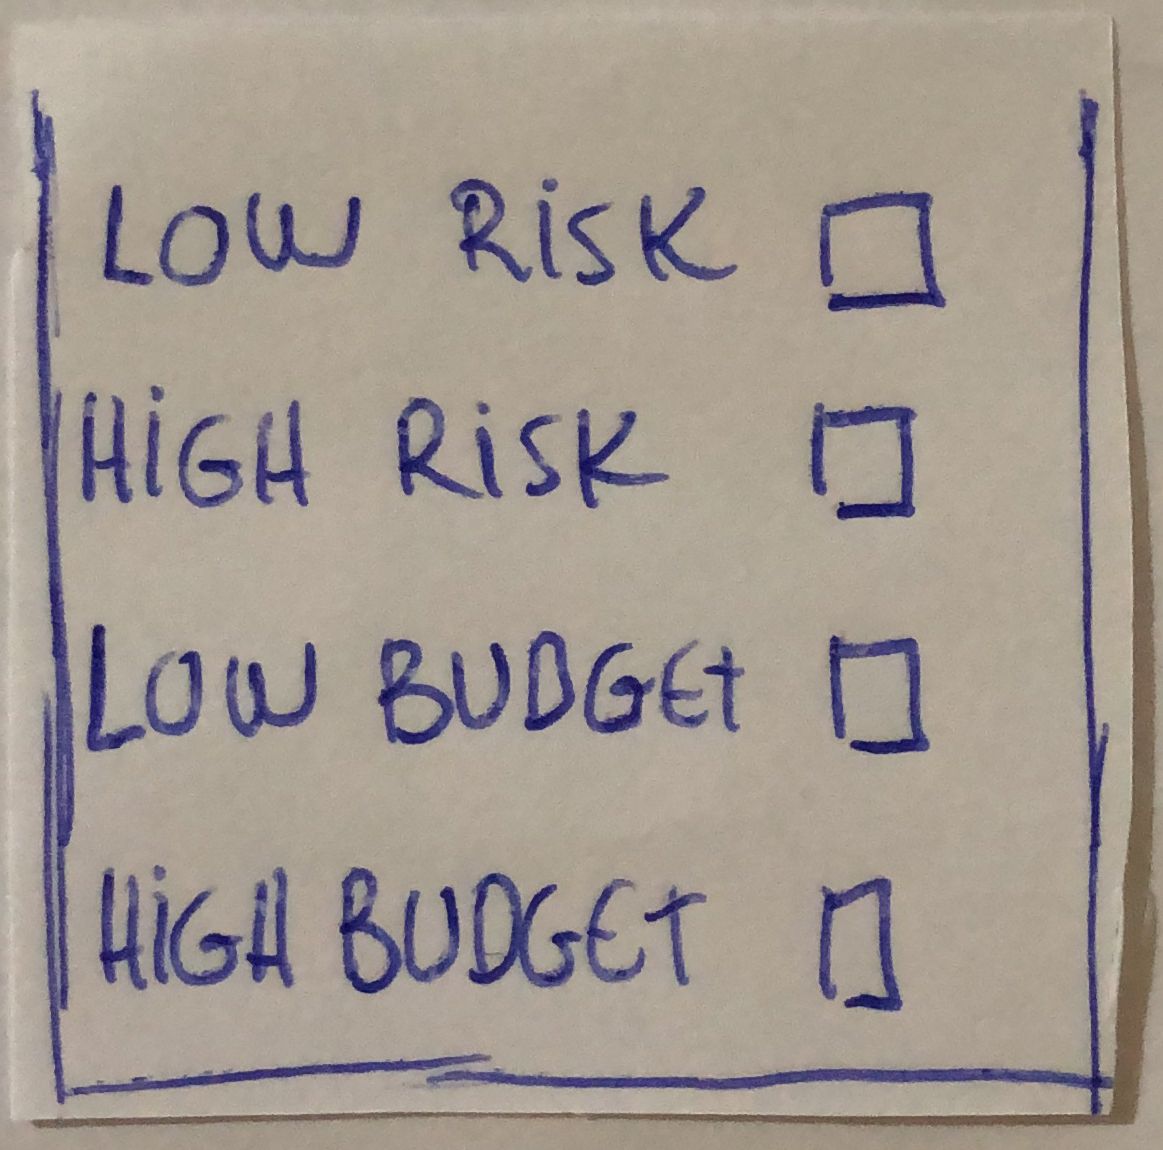 LOW RiSK □
HiGH RiSK □
LOW BUDGET □
HiGH BUDGET □